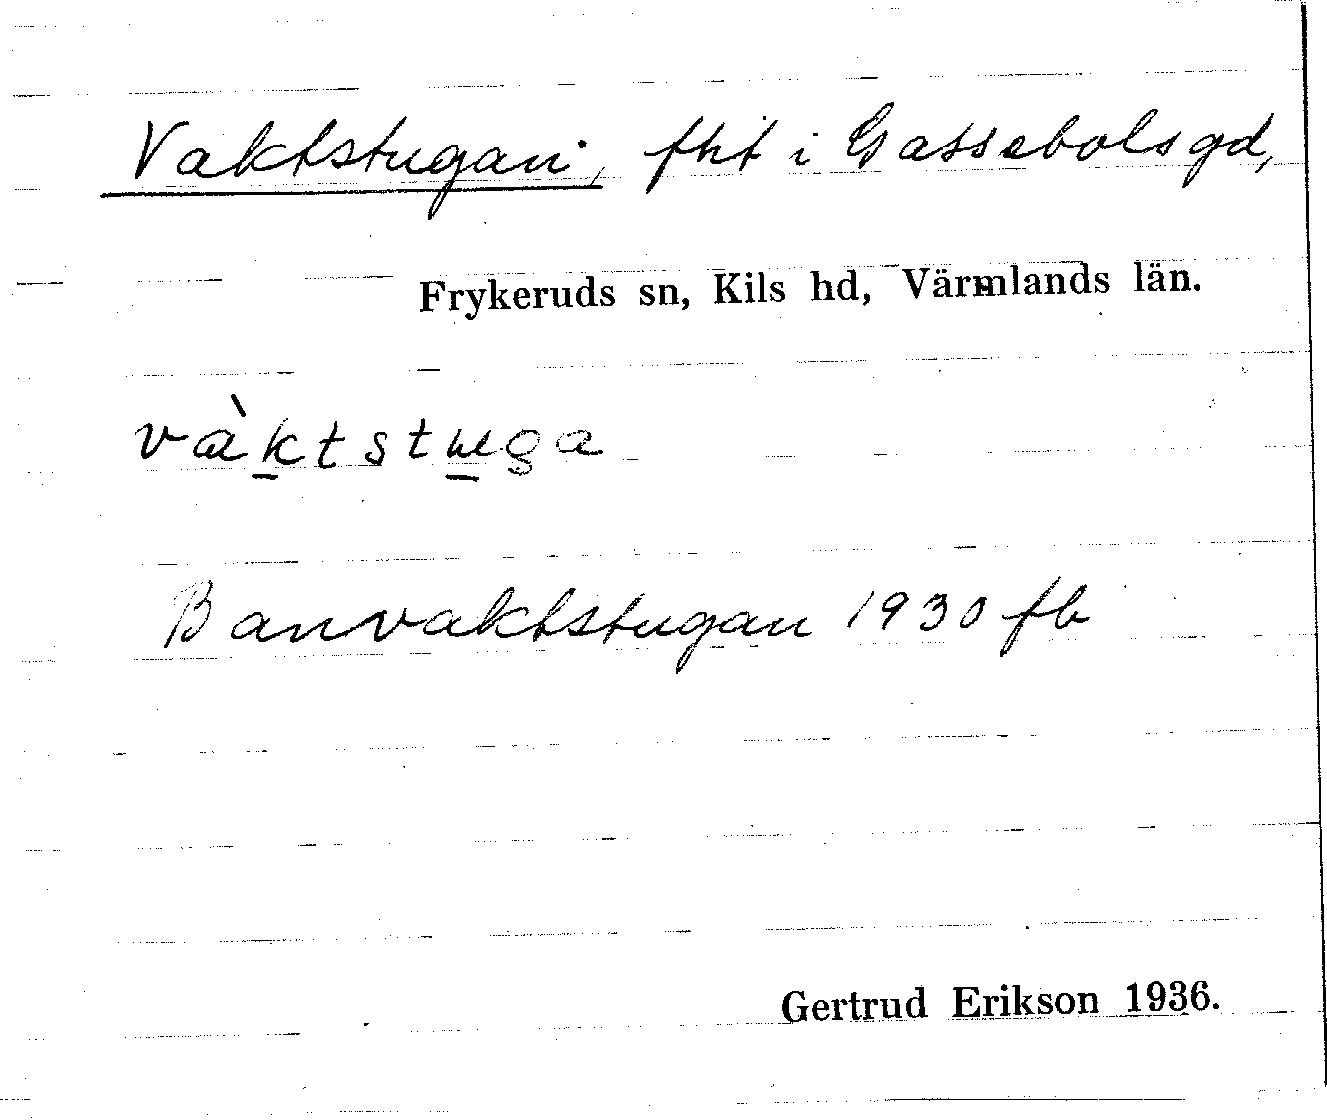 Vaktstugan, fhit i Gatsebolsgd,
Frykeruds sn, Kils hd, Värmlands län.
vàktstuga
Banvaktstugan 1930 fb
Gertrud Erikson 1936.